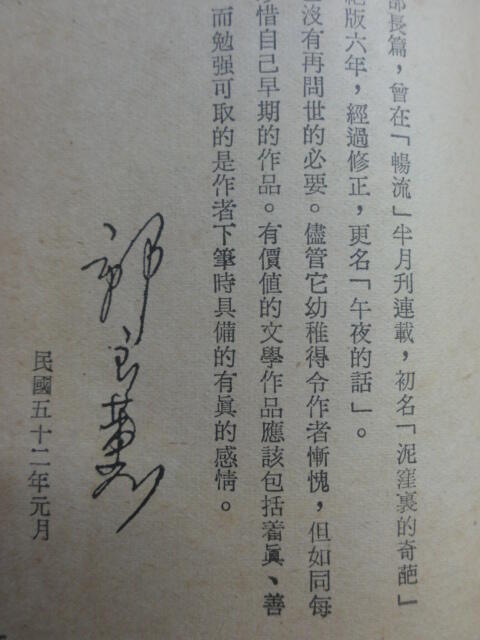 部長篇，曾在「暢流」半月刊連載，初名「泥窪裏的奇葩」
絕版六年，經過修正，更名「午夜的話」。
沒有再問世的必要。儘管它幼稚得令作者慚愧，但如同每
惜自己早期的作品。有價值的文學作品應該包括着眞、善
而勉强可取的是作者下筆時具備的有眞的感情。
郭良蕙
民國五十二年元月